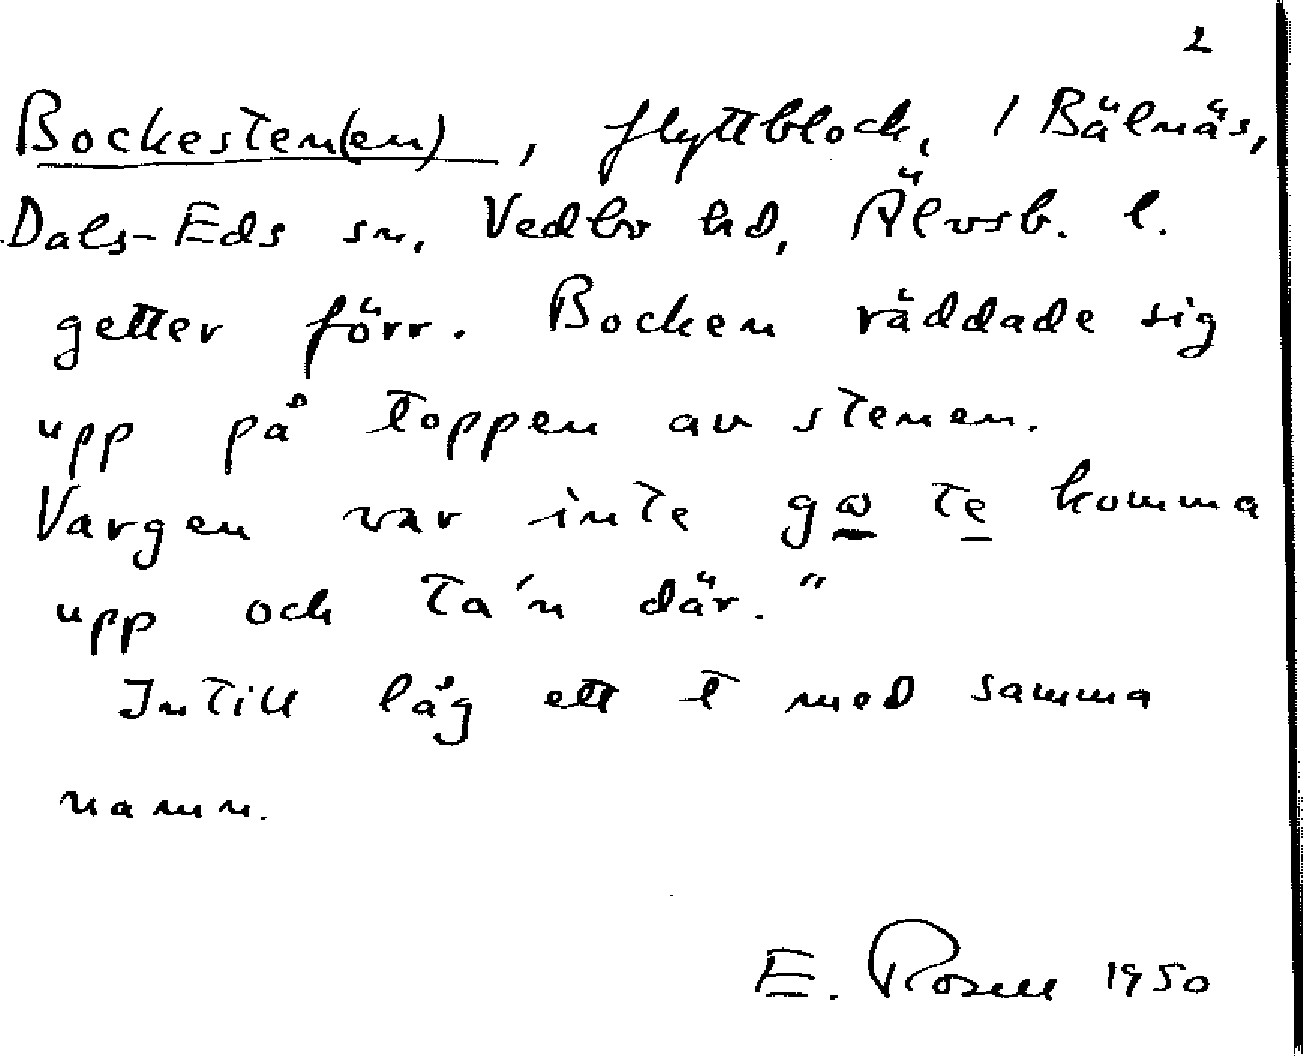 2
Bockesten(en), flyttblock, / Bälnäs,
Dals-Eds sn, Vedbo hd, Älvsb. l.
getter förr. Bocken räddade sig
upp på toppen av stenen.
Vargen var inte gω te komma
upp och ta'n där."
Intill låg ett t med samma
namn.
E. Rosell 1950